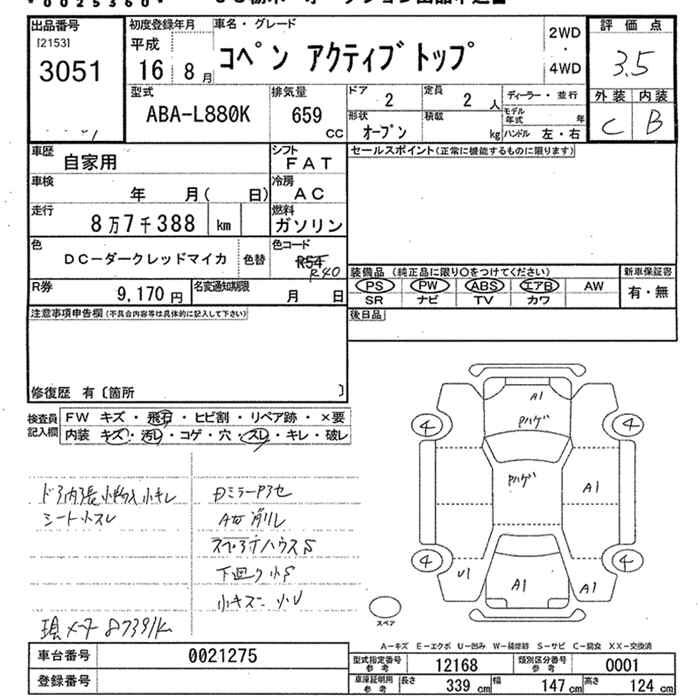 *0025360*
出品番号
[2153]
3051
初度登録年月
平成
16 8月
車名・グレード
コペン アクティブトップ
2WD
・
4WD
評価点
3.5
外装 内装
C B
型式
ABA-L880K
排気量
659
cc
ドア
2
定員
2 人
形状
オープン
積載
kg
ディーラー・並行
モデル年式 年
ハンドル 左・右
車歴
自家用
シフト
FAT
車検
年 月( 日)
冷房
AC
走行
8万7千388 km
燃料
ガソリン
色
DC-ダークレッドマイカ
色替
色コード
R54
R40
R券
9,170円
名変通知期限
月 日
セールスポイント(正常に機能するものに限ります)
装備品 (純正品に限り○をつけてください)
PS PW ABS エアB AW
SR ナビ TV カワ
新車保証書
有・無
後日品
注意事項申告欄(不具合内容等は具体的に記入して下さい)
修復歴 有〔箇所 〕
検査員記入欄
FW キズ・飛石・ヒビ割・リペア跡・×要
内装 キズ・汚レ・コゲ・穴・スレ・キレ・破レ
シート小スレ
下回り小S
小キズ 小U
現メータ 87391K
A1
Pハゲ
Pハゲ
A1
4
4
4
4
U1
A1
A1
スペア
A-キズ E-エクボ U-凹み W-補修跡 S-サビ C-腐食 XX-交換済
車台番号
0021275
登録番号
型式指定番号
参考
12168
類別区分番号
参考
0001
車庫証明用
参考
長さ 339 cm
幅 147 cm
高さ 124 cm